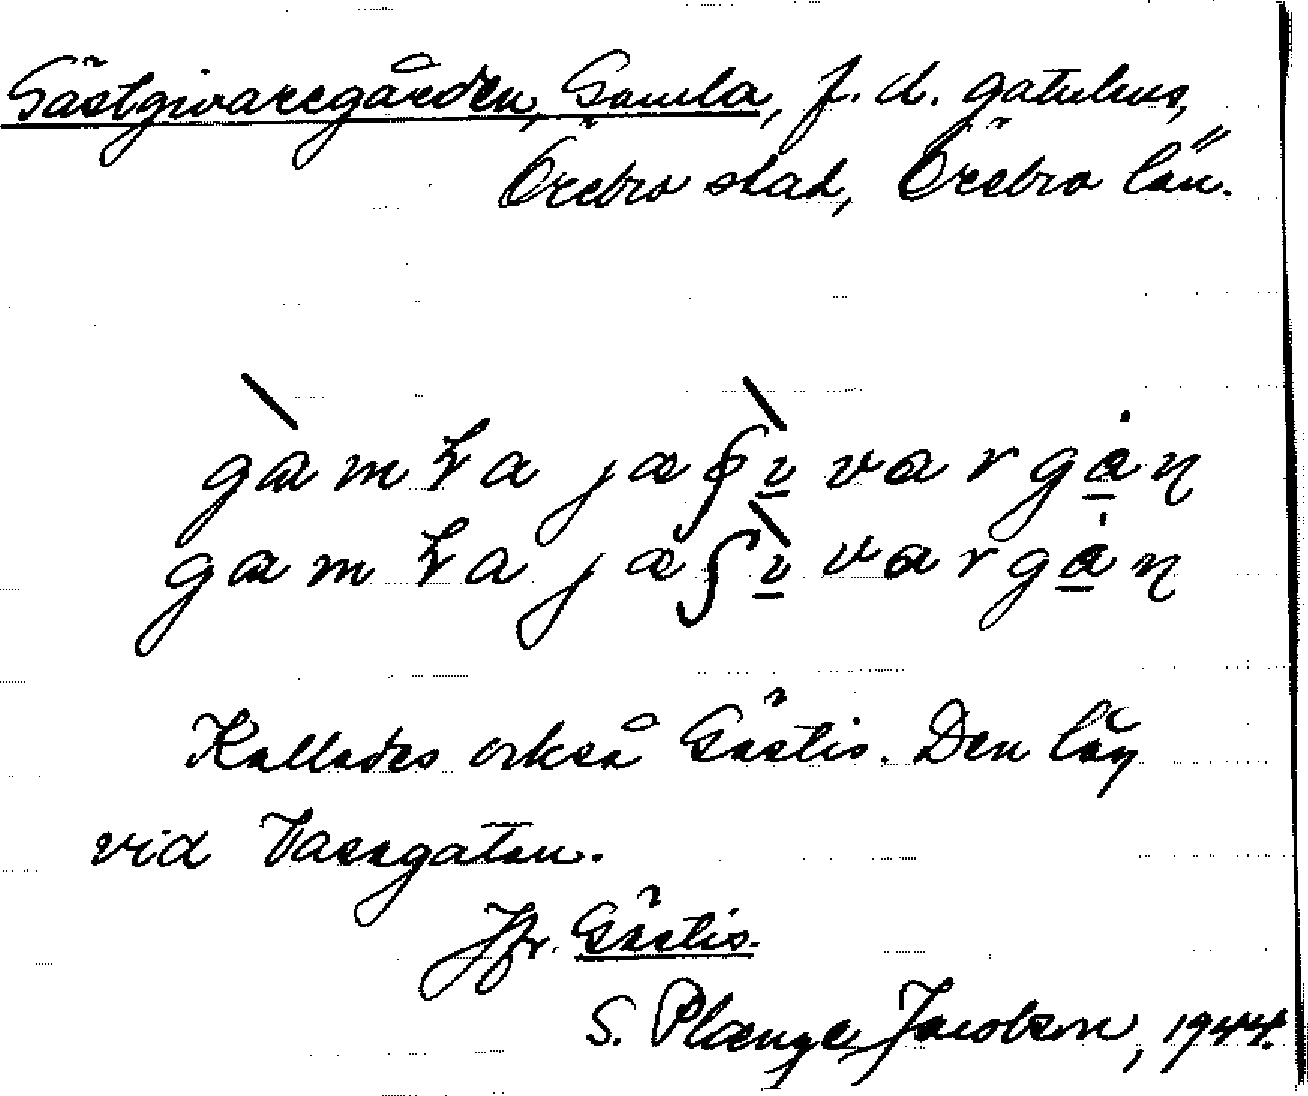 Gästgivaregården, Gamla, f. d. gatuhus,
Örebro stad, Örebro län.
gàmɫa jæʃì̠vargȧ̠ɳ
gamɫa jæʃì̠vargȧ̠ɳ
Kallades också Gästis. Den låg
vid Vasagatan.
Jfr. Gästis.
S. Plænge Jacobson, 1944.